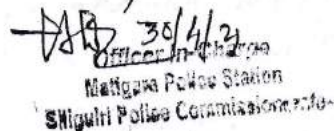 30/4/21
Officer-in-Charge
Matigara Police Station
Siliguri Police Commissionerate